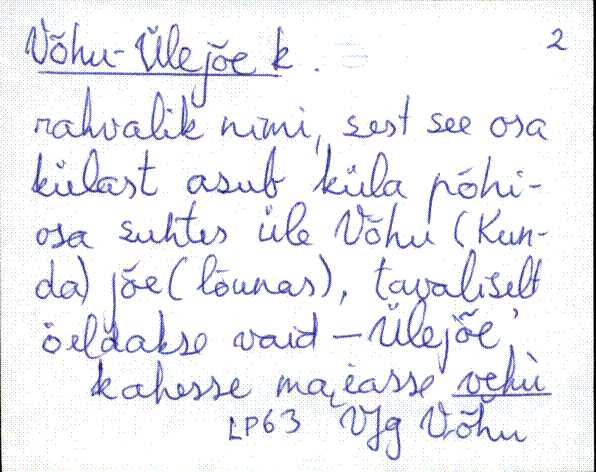 Võhu-Ülejõe k. 2
rahvalik nimi, sest see osa
külast asub küla põhi-
osa suhtes üle Võhu (Kun-
da) jõe (lõunas), tavaliselt
öeldakse vaid – Ülejõe,
kahesse majasse vehù
LP63 VJg Võhu